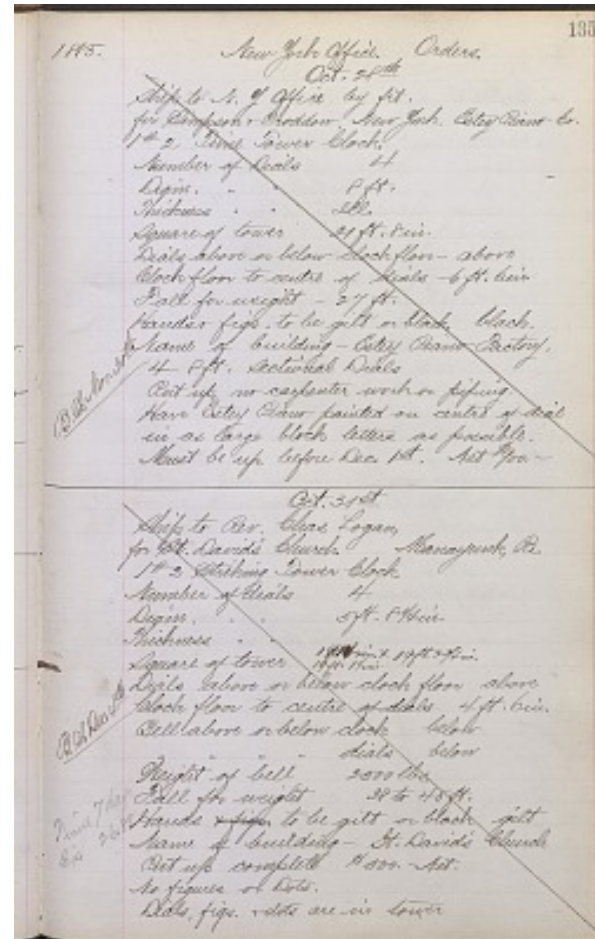 135
1885. New York Office. Orders.
Oct. 28th
Ship to N. Y Office by frt.
for Simpson & Proddow New York. Estey Piano Co.
1 # 2 Time Tower Clock.
Number of Dials 4
Diam. " " 8 ft.
Thickness " "
Square of tower 21 ft. 8 in
Dials above or below Clock floor - above
Clock floor to centre of dials - 6 ft. 6 in
Fall for weight - 27 ft.
Hands & figs. to be gilt or black black.
Name of building - Estey Piano Factory.
4 8 ft. Sectional Dials
Put up no carpenter work or piping
Have Estey Piano painted on centre of dial
in as large block letters as possible.
Must be up before Dec. 1st. Net
Oct. 31st
Ship to Rev. Chas. Logan,
for St. David's Church Manayunk, Pa.
1 # 2 Striking Tower Clock
Number of dials 4
Diam. " " 5 ft.
Thickness " "
Square of tower
Dials above or below clock floor above
Clock floor to centre of dials 4 ft. 6 in.
Bell above or below clock below
" " " " dials below
Weight of bell 2000 lbs
Fall for weight 38 to 48 ft.
Hands & figs to be gilt or black gilt
Name of building - St. David's Church
Put up complete Net.
No figures or Dots.
Dials, figs. & dots are in tower